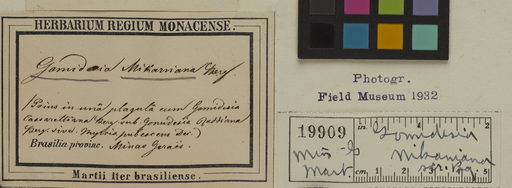 HERBARIUM REGIUM MONACENSE.
Gomidesia Mikaniana Berg
(Prius in unâ plagula cum Gomidesia
Casarettiana Berg sub Gomidesia
Myrcia pubescens Dec.)
Brasilia provinc. Minas Geraës.
Martii Iter brasiliense.
Photogr.
Field Museum 1932
19909
Gomidesia
Mikaniana
Mart.
in.
cm.
1
2
3
4
5